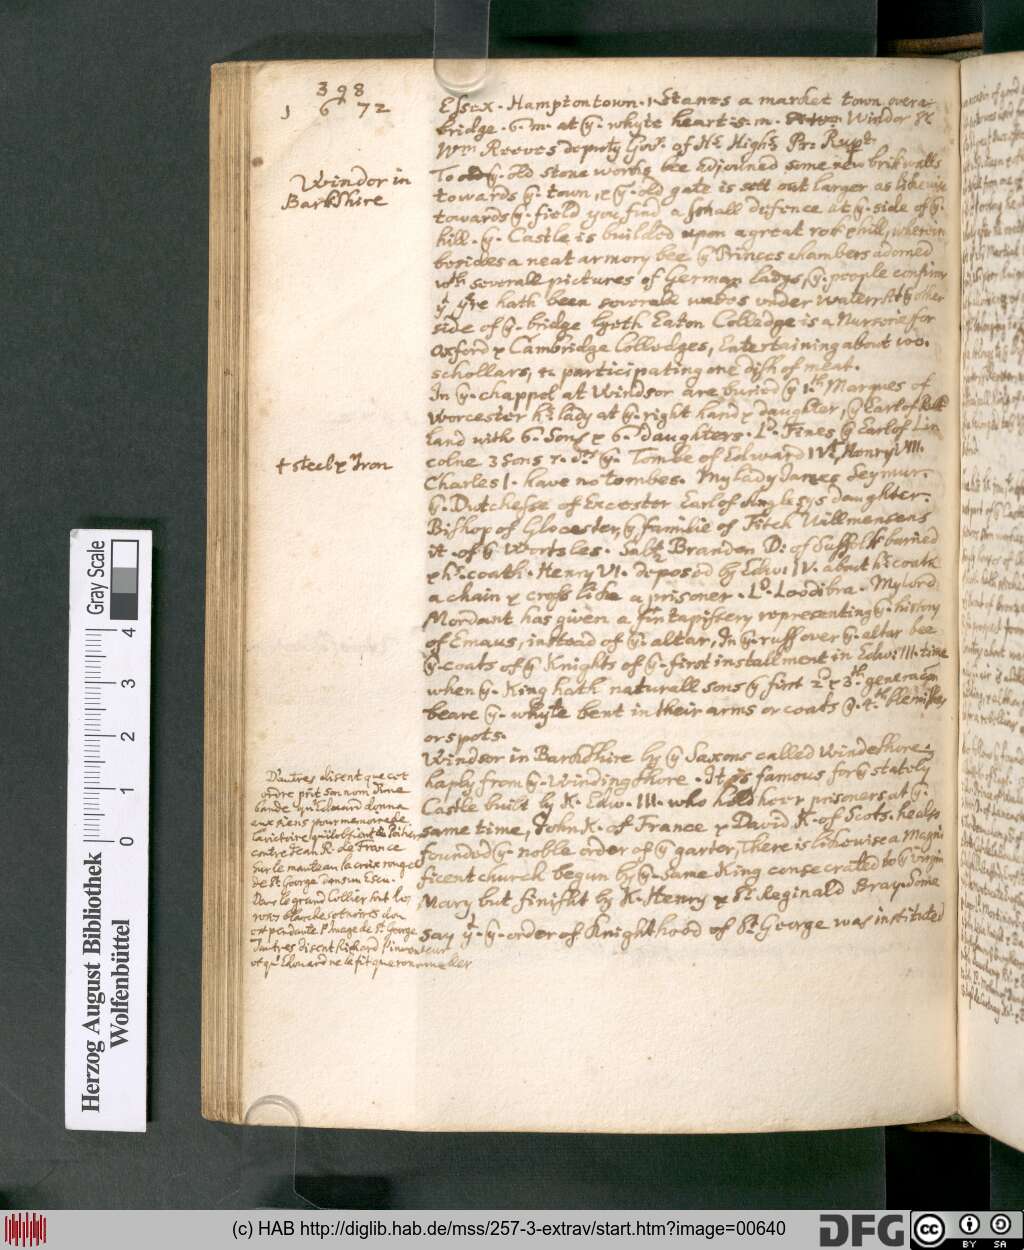 398
1672
Essex. Hamptontown. Stanes a market town, over a
bridge. 6. m. at yᵉ. whyte heart. 5. m. Windor Sʳ
Wᵐ Reeves deputy Govʳ. of Hˢ Highˢ Pr: Rupᵗ.
Windor in
Barkshire
To yᵉ. old stone works bee adjoined some new brik walls
towards yᵉ. town, & yᵉ. old gate is sett out larger as likewise
towards yᵉ. field you find a small defence at yᵉ. side of yᵉ.
hill. yᵉ. Castle is builded upon a great rok & hill, wherein
besides a neat armory bee yᵉ Princes chambers adorned
wᵗʰ severall pictures of German ladys, yᵉ. people confirm
yᵗ yʳᵉ hath been severall under water. At yᵉ other
side of yᵉ. bridge lyeth Eaton Colledge is a Nurserie for
Oxford & Cambridge Colledges, Entertaining about
schollars, & participating one dish of meat.
In yᵉ. chappel at Windsor are buried yᵉ 1.ᵗʰ Marques of
Worcester hˢ lady at yᵉ. right hand & daughter, yᵉ Earl of Rutt
land with 6. Sons & 6. Daughters. Lᵈ. Fines yᵉ Earl of Lin
colne 3 Sons yᵉ. Tombe of Edward IVᵗʰ, Henry VIII.
+ steel & Iron
Charles I. have no tombes. My lady James Seymur.
yᵉ. Dutchesse of Excester Earl of Anglesys daughter.
Bishop of Glocester, yᵉ familie of Fitch Williamsens
it. of yᵉ Worsles. Brandon D: of Suffolk buried
& hˢ. coath. Henry VI. deposed by Edw. IV. about hˢ coath
a chain & cross like a prisoner. Lᵈ. Loodibra. My lord
Mordant has given a fin tapistery representing yᵉ. history
of Emaus, instead of yᵉ. altar, In yᵉ. ruff over yᵉ. altar bee
yᵉ. coats of yᵉ Knights of yᵉ. first installment in Edw: III. time
when yᵉ. King hath naturall sons yᵉ first 2ᵈ & 3ᵗʰ generacon
beare yᵉ. whyte bent in their arms or coats yᵉ. 4.ᵗʰ blemishes
or spots.
Windsor in Barkshire by yᵉ Saxons called Windeshore,
haply from yᵉ. Winding shore. It is famous for yᵉ stately
Castle built by K. Edw. III. who held hear prisoners at yᵉ.
same time, John K. of France & David K. of Scots. he also
founded yᵉ. noble order of yᵉ garter, There is likewise a Magni
ficent church begun by yᵉ. same King consecrated to yᵉ virgin
Mary but finisht by K. Henry & Sʳ. Reginald Bray. Some
say yᵗ. yᵉ. order of Knighthood of Sᵗ. George was instituted
D'autres disent que cet
ordre prit son nom d'une
bande qu'Edouard donna
aux siens pour memoire de
la victoire qu'il obtient de Poitiers
contre Jean R. de France
sur le manteau la croix rouge
de Sᵗ. George dans un Escu.
Dans le grand Collier sont les
roses blanches et rouges dou
est pendante l'Image de Sᵗ. George
D'autres disent Richard l'inventeur
et qu'Edouard ne la fit que renouveller
Herzog August Bibliothek
Wolfenbüttel
Gray Scale
0 1 2 3 4
(c) HAB http://diglib.hab.de/mss/257-3-extrav/start.htm?image=00640
DFG
cc BY SA